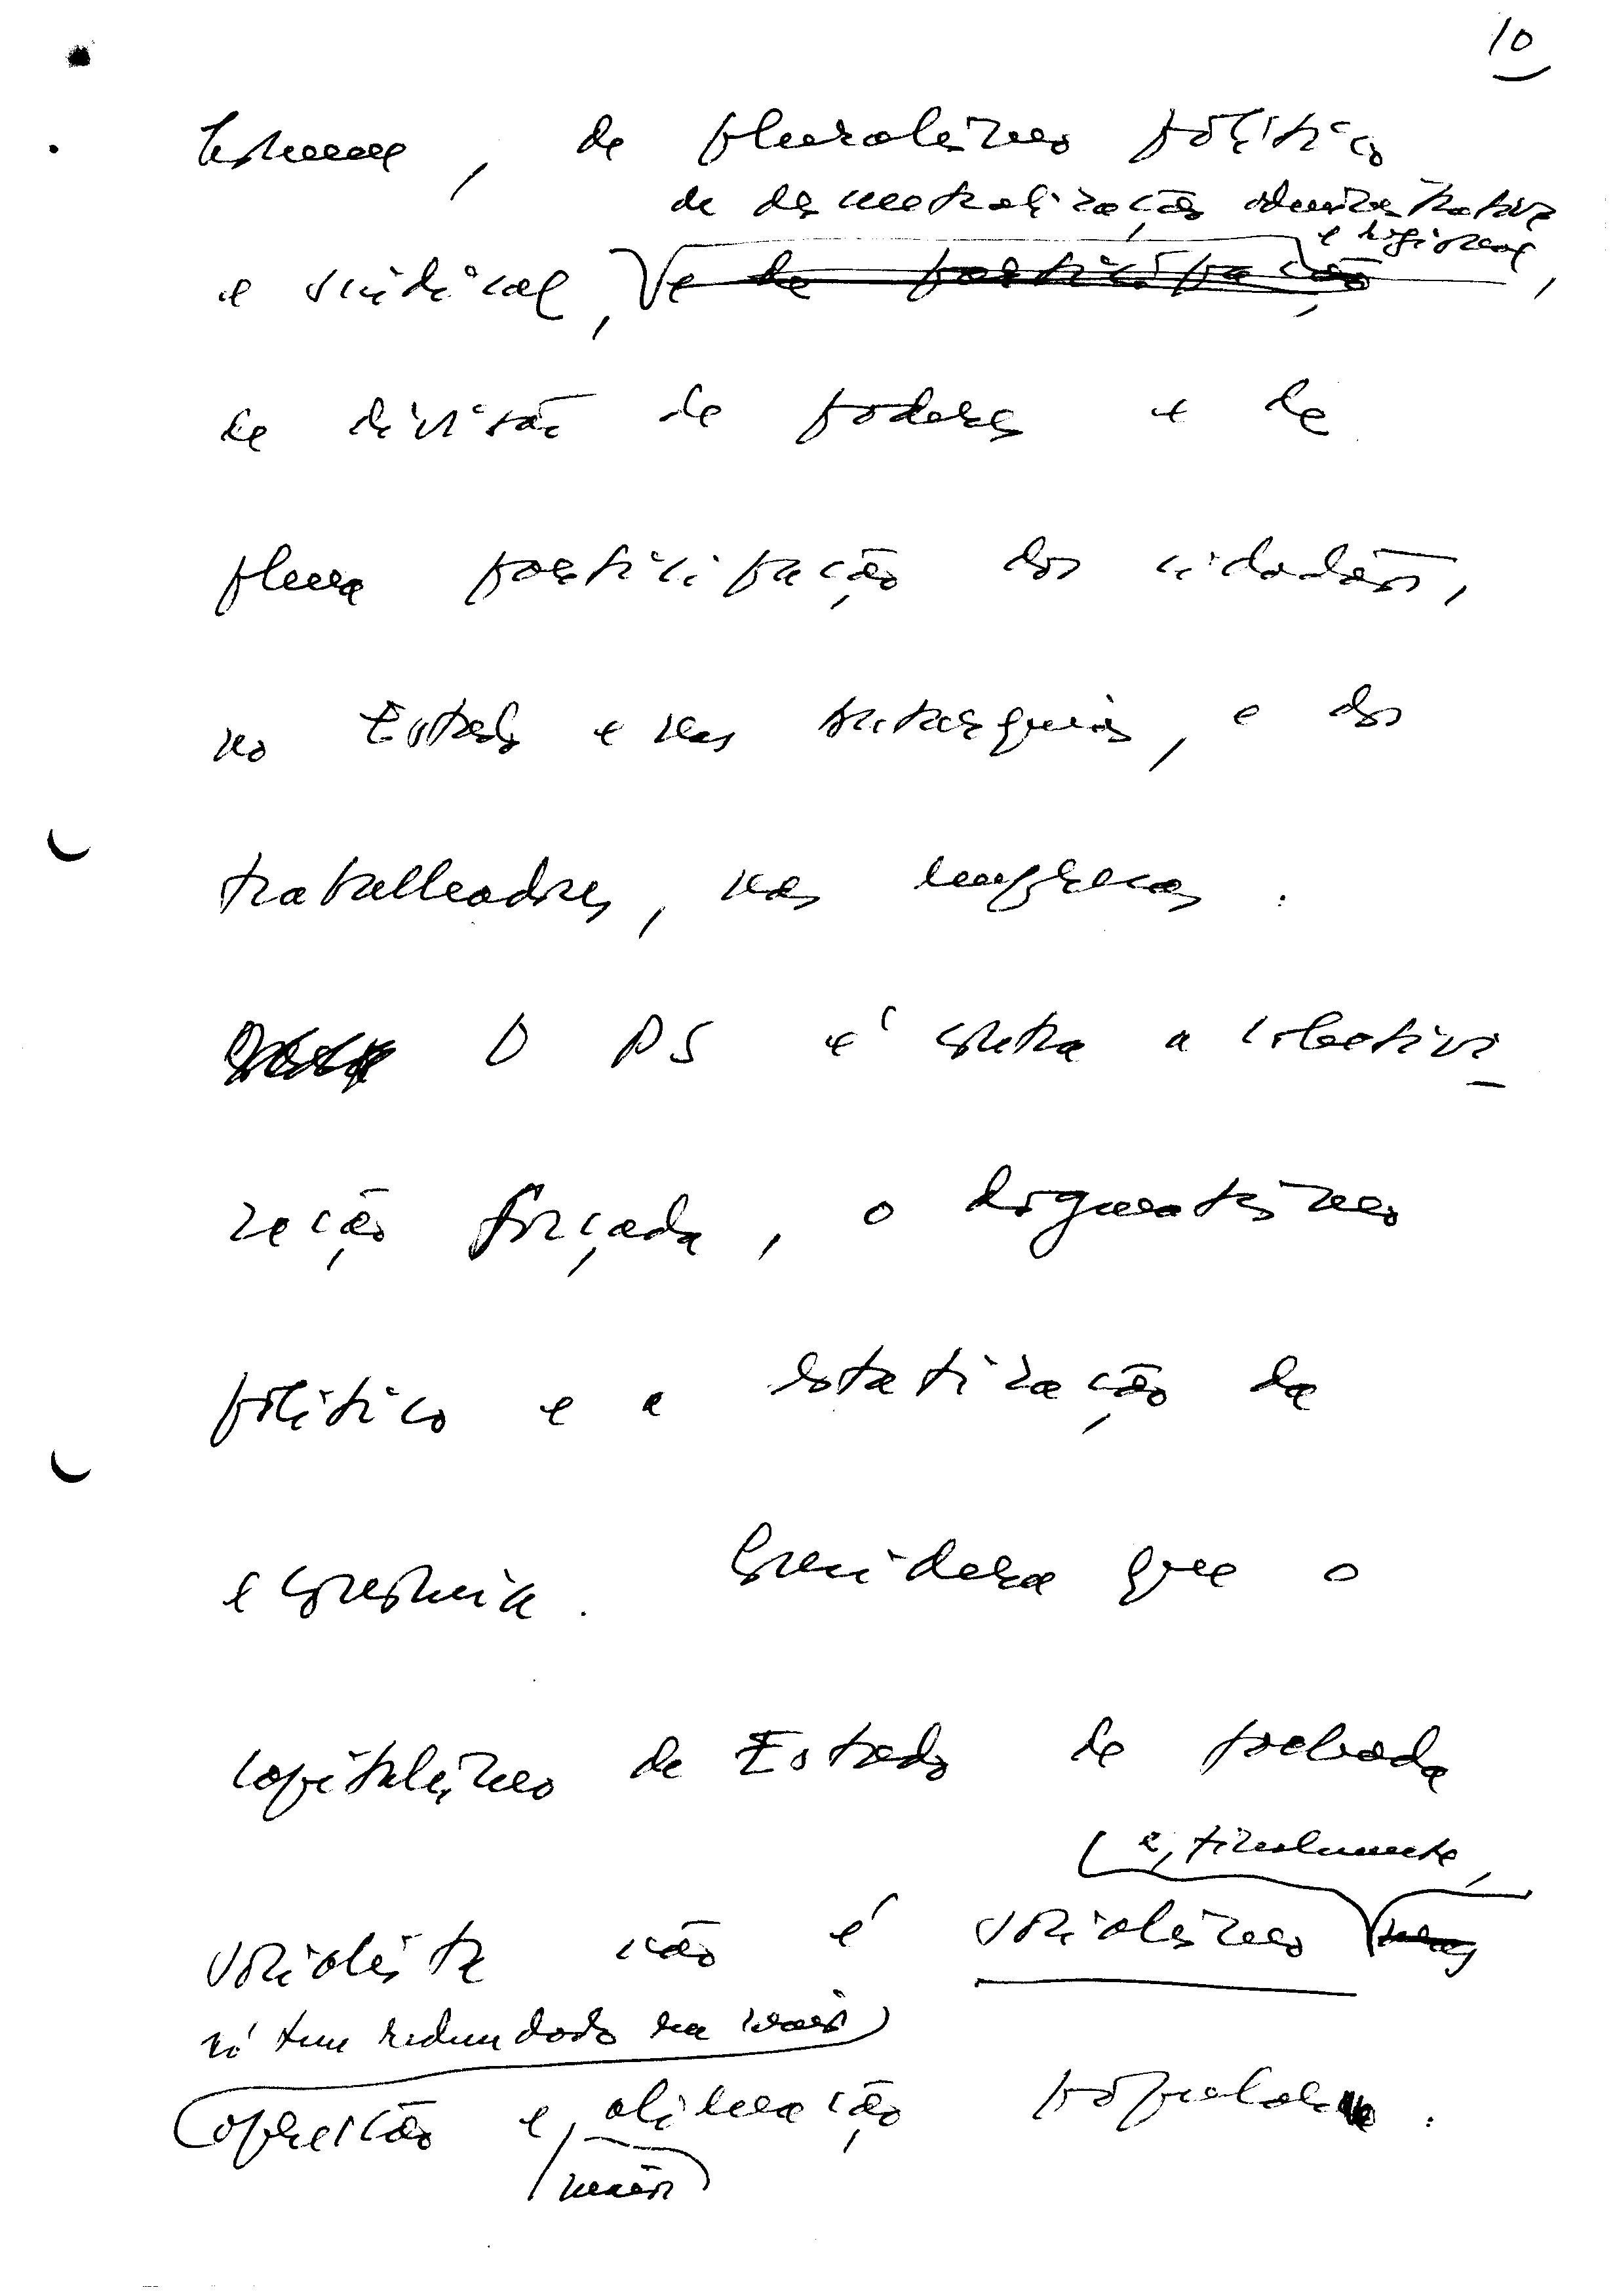 10
humana, de pluralismo político
de descentralização administrativa
e regional,
e sindical, e de participação,
de divisão de poderes e de
plena participação dos cidadãos,
no Estado e nas autarquias, e dos
trabalhadores, nas empresas.
O PS é contra a colectivi
zação forçada, o dogmatismo
político e a estatização da
economia. Considera que o
capitalismo de Estado de fachada
e, finalmente,
socialista não é socialismo mas
só tem redundado na mais
opressão e alienação popular.
maior